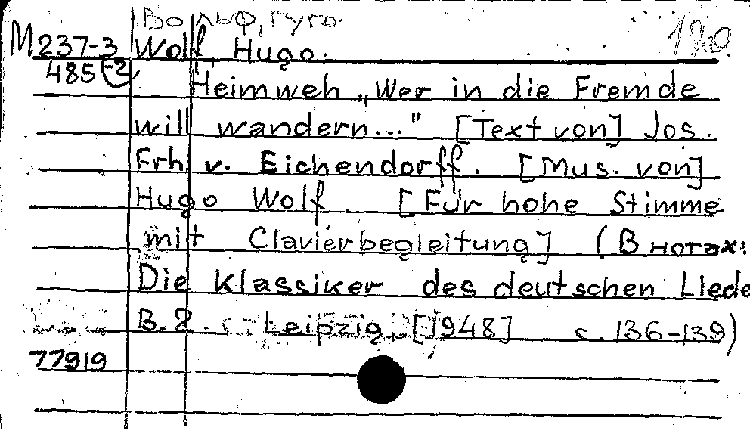 Вольф, Гуго.
120
М 237-3 Wolf, Hugo.
485-2 Heimweh „Wer in die Fremde
will wandern..." [Text von] Jos.
Frh. v. Eichendorff. [Mus. von]
Hugo Wolf. [Für hohe Stimme
mit Clavierbegleitung] (В нотах:
Die Klassiker des deutschen Liede
B. 2. Leipzig, [1948] с. 136-139)
77919